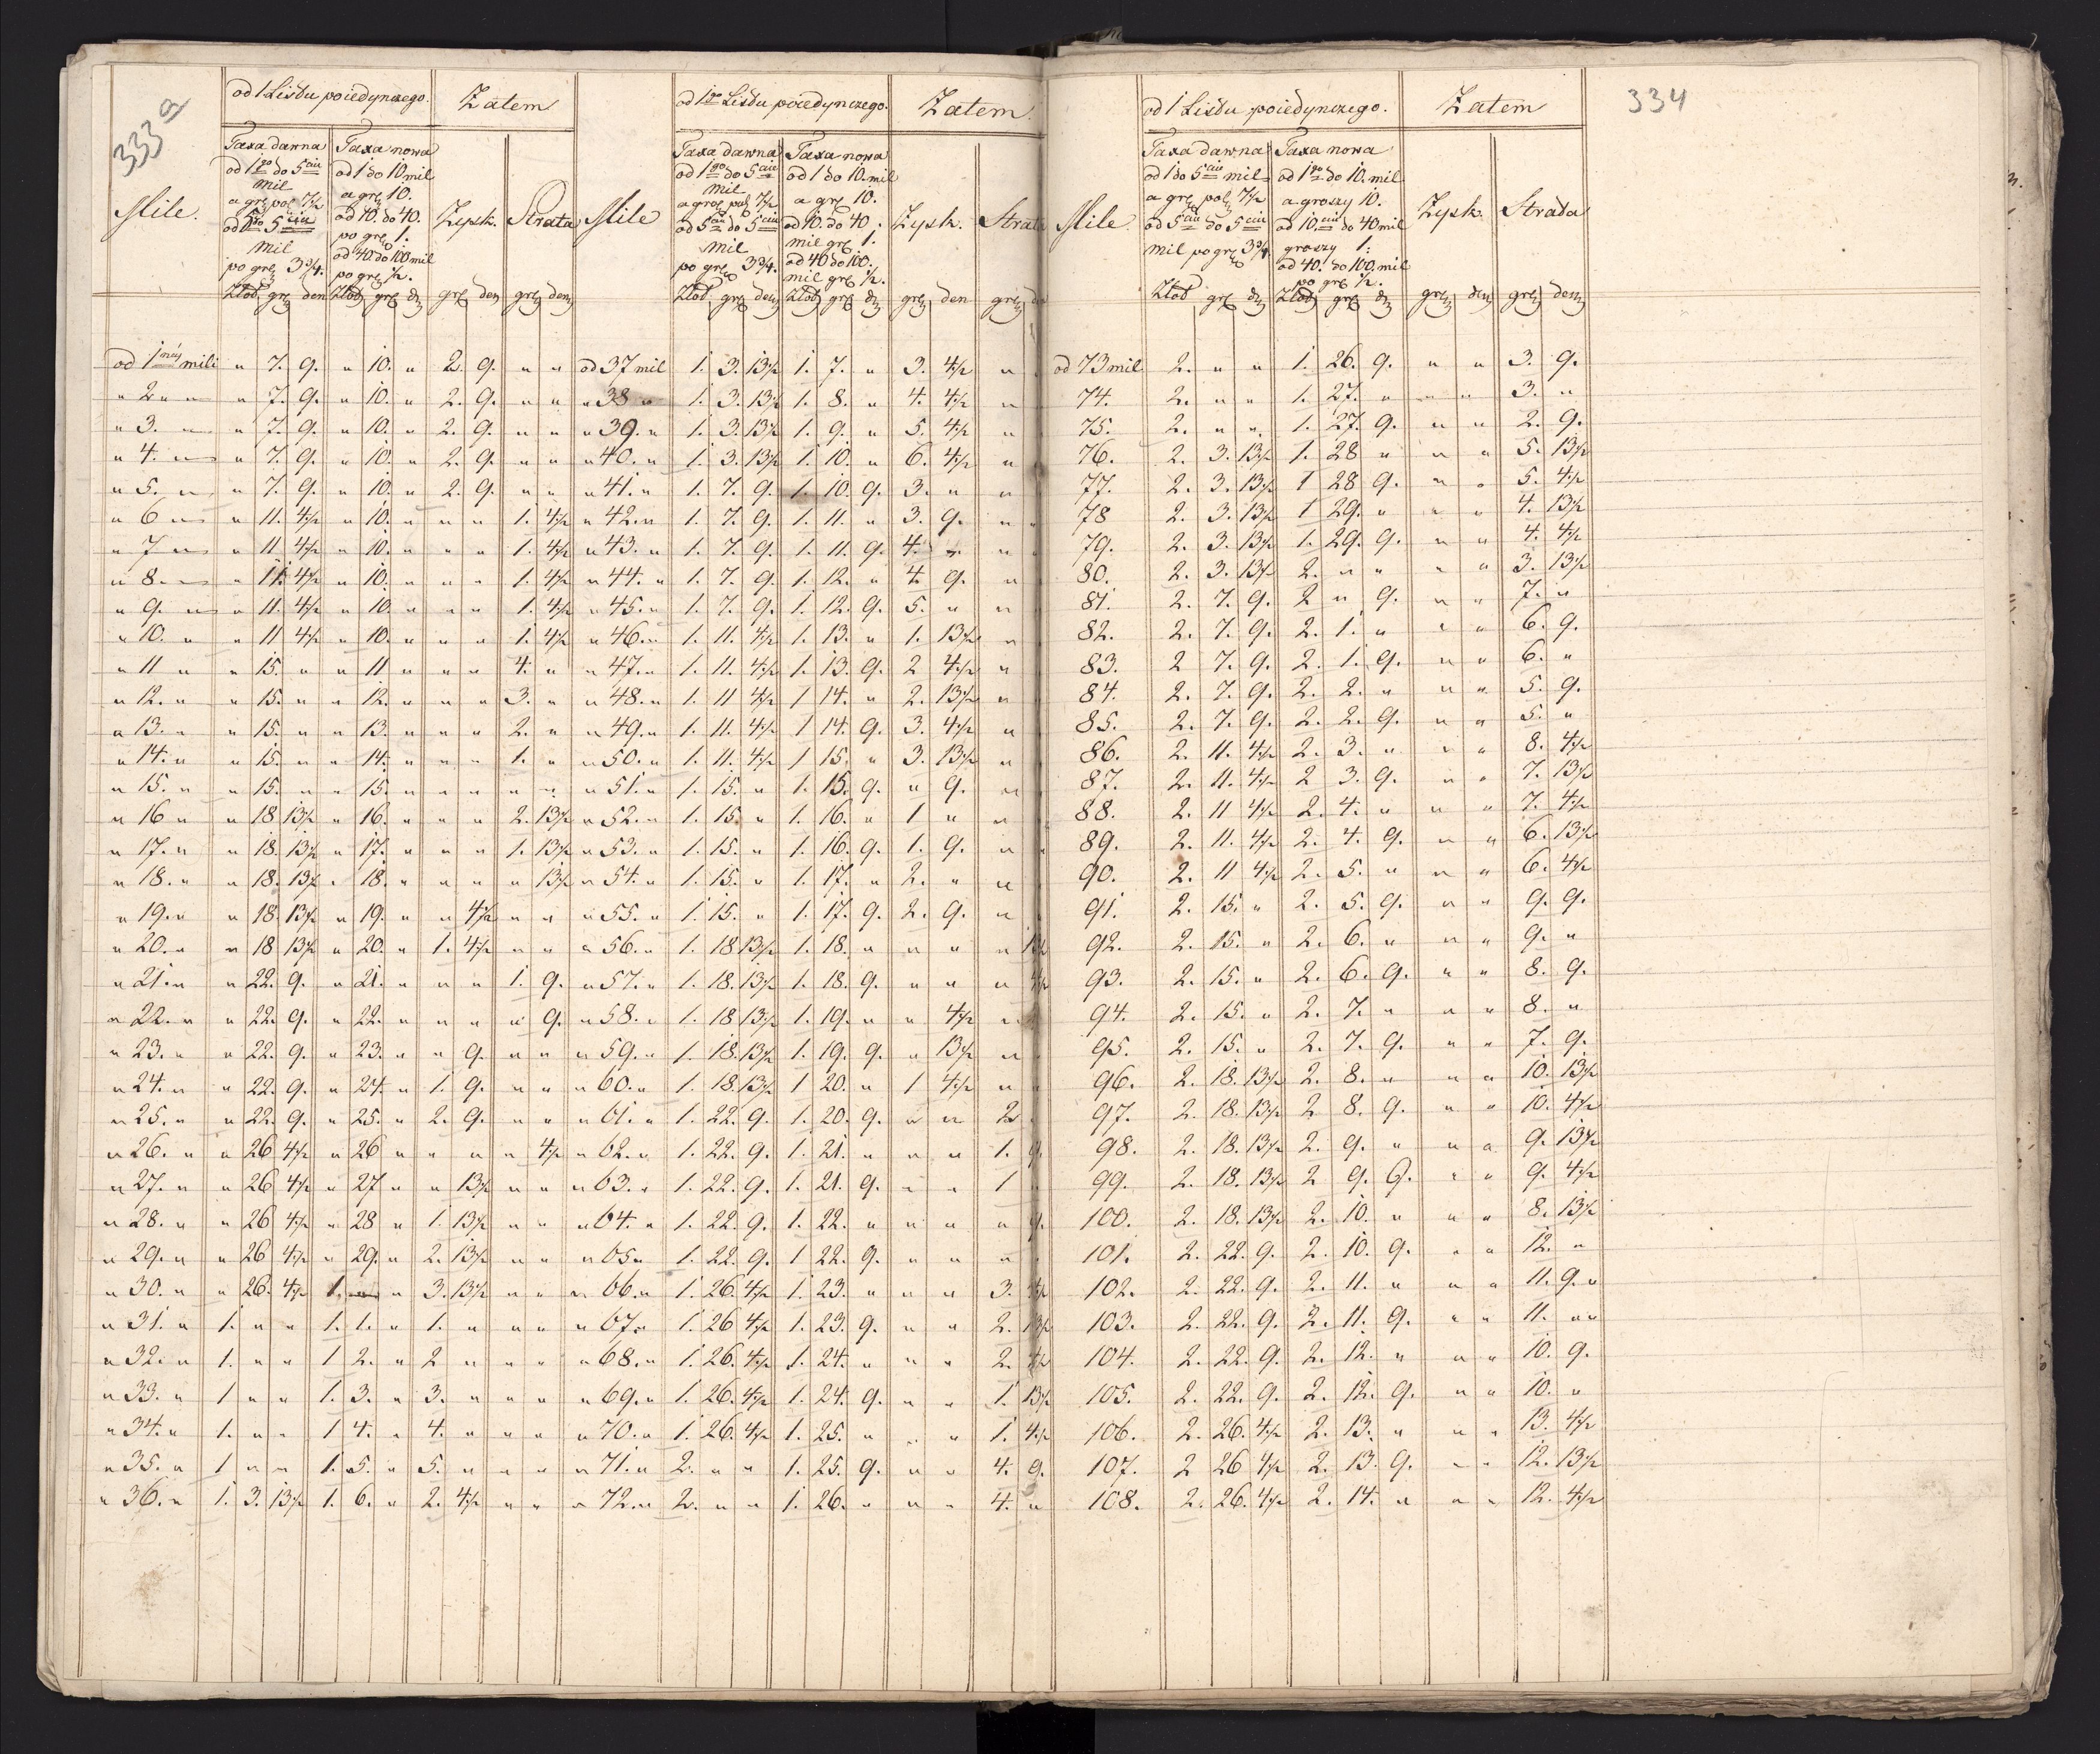 333a
334
od 1 Listu poiedynczego. Zatem
Mile.
Taxa dawna
od 1go do 5ciu
mil
a gr pol 7½
od 5ciu
mil
po gr 3¾.
Taxa nowa
od 1 do 10 mil
a gr 10.
od 10. do 40.
po gr 1.
od 40. do 100 mil
po gr ½.
Zysk. Strata
od 1go Listu poiedynczego. Zatem.
Mile
Taxa dawna
od 1go do 5ciu
mil
a gro pol 7½
od 5ciu do 5ciu
mil
po gr 3¾.
Taxa nowa
od 1 do 10. mil
a gr 10.
od 10. do 40.
mil gr 1.
od 40 do 100.
mil gr ½.
Zysk. Strata
od 1 Listu poiedynczego. Zatem
Mile
Taxa dawna
od 1 do 5ciu mil
a gr pol 7½
od 5ciu do 5ciu
mil po gr 3¾.
Taxa nowa
od 1go do 10. mil
a groszy 10.
od 10.ciu do 40 mil
groszy 1:
od 40. do 100. mil
po gr ½.
Zysk. Strata
od 1 mili " 7. 9. " 10. " 2. 9. " " od 37 mil 1. 3. 13½ 1. 7. " 3. 4½ " od 73 mil 2. " " 1. 26. 9. " " 3. 9.
" 2 " " 7. 9. " 10. " 2. 9. " " " 38 " 1. 3. 13½ 1. 8. " 4. 4½ " 74. 2. " " 1. 27. " " " 3. "
" 3. " " 7. 9. " 10. " 2. 9. " " " 39. " 1. 3. 13½ 1. 9. " 5. 4½ " 75. 2. " " 1. 27. 9. " " 2. 9.
" 4. " " 7. 9. " 10. " 2. 9. " " " 40. " 1. 3. 13½ 1. 10. " 6. 4½ " 76. 2. 3. 13½ 1. 28 " " " 5. 13½
" 5. " " 7. 9. " 10. " 2. 9. " " " 41. " 1. 7. 9. 1. 10. 9. 3. " " 77. 2. 3. 13½ 1 28 9. " " 5. 4½
" 6 " " 11. 4½ " 10. " " " 1. 4½ " 42. " 1. 7. 9. 1. 11. " 3. 9. " 78 2. 3. 13½ 1 29. " " " 4. 13½
" 7 " " 11 4½ " 10. " " " 1. 4½ " 43. " 1. 7. 9. 1. 11. 9. 4. " " 79. 2. 3. 13½ 1. 29. 9. " " 4. 4½
" 8. " " 11. 4½ " 10. " " " 1. 4½ " 44. " 1. 7. 9. 1. 12. " 4 9. " 80. 2. 3. 13½ 2. " " " " 3. 13½
" 9. " " 11. 4½ " 10. " " " 1. 4½ " 45. " 1. 7. 9. 1. 12. 9. 5. " " 81. 2. 7. 9. 2 " 9. " " 7. "
" 10. " " 11 4½ " 10. " " " 1. 4½ " 46. " 1. 11. 4½ 1. 13. " 1. 13½ " 82. 2. 7. 9. 2. 1. " " " 6. 9.
" 11 " " 15. " " 11 " " " 4. " " 47. " 1. 11. 4½ 1. 13. 9. 2 4½ " 83. 2 7. 9. 2. 1. 9. " " 6. "
" 12. " " 15. " " 12. " " " 3. " " 48. " 1. 11 4½ 1 14. " 2. 13½ " 84. 2. 7. 9. 2. 2. " " " 5. 9.
" 13. " " 15. " " 13. " " " 2. " " 49. " 1. 11. 4½ 1 14. 9. 3. 4½ " 85. 2. 7. 9. 2. 2. 9. " " 5. "
" 14. " " 15. " " 14. " " " 1. " " 50. " 1. 11. 4½ 1 15. " 3. 13½ " 86. 2. 11. 4½ 2. 3. " " " 8. 4½
" 15. " " 15. " " 15. " " " " " " 51. " 1. 15. " 1. 15. 9. " 9. " 87. 2. 11. 4½ 2 3. 9. " " 7. 13½
" 16 " " 18 13½ " 16. " " " 2. 13½ " 52. " 1. 15 " 1. 16. " 1 " " 88. 2. 11 4½ 2. 4. " " " 7. 4½
" 17. " " 18. 13½ " 17. " " " 1. 13½ " 53. " 1. 15. " 1. 16. 9. 1. 9. " 89. 2. 11. 4½ 2. 4. 9. " " 6. 13½
" 18. " " 18. 13½ " 18. " " " " 13½ " 54. " 1. 15. " 1. 17. " 2. " " 90. 2. 11 4½ 2. 5. " " " 6. 4½
" 19. " " 18. 13½ " 19. " " 4½ " " " 55. " 1. 15. " 1. 17. 9. 2. 9. " 91. 2. 15. " 2. 5. 9. " " 9. 9.
" 20. " " 18 13½ " 20. " 1. 4½ " " " 56. " 1. 18 13½ 1. 18. " " " " 13½ 92. 2. 15. " 2. 6. " " " 9. "
" 21. " " 22. 9. " 21. " " " 1. 9. " 57. " 1. 18. 13½ 1. 18. 9. " " " 4½ 93. 2. 15. " 2. 6. 9. " " 8. 9.
" 22. " " 22. 9. " 22. " " " " 9. " 58. " 1. 18 13½ 1. 19. " " 4½ " 94. 2. 15. " 2. 7. " " " 8. "
" 23. " " 22. 9. " 23. " " 9. " " " 59. " 1. 18. 13½ 1. 19. 9. " 13½ " 95. 2. 15. " 2. 7. 9. " " 7. 9.
" 24. " " 22. 9. " 24. " 1. 9. " " " 60. " 1. 18. 13½ 1 20. " 1 4½ " 96. 2. 18. 13½ 2. 8. " " " 10. 13½
" 25. " " 22. 9. " 25. " 2. 9. " " " 61. " 1. 22. 9. 1. 20. 9. " " 2 97. 2. 18. 13½ 2 8. 9. " " 10. 4½
" 26. " " 26 4½ " 26 " " " " 4½ " 62. " 1. 22. 9. 1. 21. " " " 1. 9. 98. 2. 18. 13½ 2. 9. " " " 9. 13½
" 27. " " 26 4½ " 27 " " 13½ " " " 63. " 1. 22. 9. 1. 21. 9. " " 1 99. 2. 18. 13½ 2 9. 9. " " 9. 4½
" 28. " " 26 4½ " 28 " 1. 13½ " " " 64. " 1. 22. 9. 1. 22. " " " " 9. 100. 2. 18. 13½ 2. 10. " " " 8. 13½
" 29. " " 26 4½ " 29. " 2. 13½ " " " 65 " 1. 22. 9. 1 22. 9. " " " 101. 2. 22. 9. 2. 10. 9. " " 12. "
" 30. " " 26. 4½ 1. " " 3. 13½ " " " 66. " 1. 26. 4½ 1. 23. " " " 3. 4½ 102. 2. 22. 9. 2. 11. " " " 11. 9. "
" 31. " 1. " " 1. 1. " 1. " " " " 67. 1. 26 4½ 1. 23. 9. " " 2. 13½ 103. 2. 22. 9. 2. 11. 9. " " 11. "
" 32. " 1. " " 1 2. " 2 " " " " 68. " 1. 26. 4½ 1. 24. " " " 2. 4½ 104. 2. 22. 9. 2. 12. " " " 10. 9.
" 33. " 1 " " 1. 3. " 3. " " " " 69. " 1. 26. 4½ 1. 24. 9. " " 1. 13½ 105. 2. 22. 9. 2. 12. 9. " " 10. "
" 34. " 1. " " 1 4. " 4. " " " " 70. " 1. 26. 4½ 1. 25. " " " 1. 4½ 106. 2. 26. 4½ 2. 13. " " " 13. 4½
" 35. " 1 " " 1. 5. " 5. " " " " 71. " 2. " " 1. 25. 9. " " 4. 9. 107. 2 26 4½ 2. 13. 9. " " 12. 13½
" 36. " 1. 3. 13½ 1. 6. " 2. 4½ " " " 72. " 2. " " 1. 26. " " " 4. " 108. 2. 26. 4½ 2. 14. " " " 12. 4½